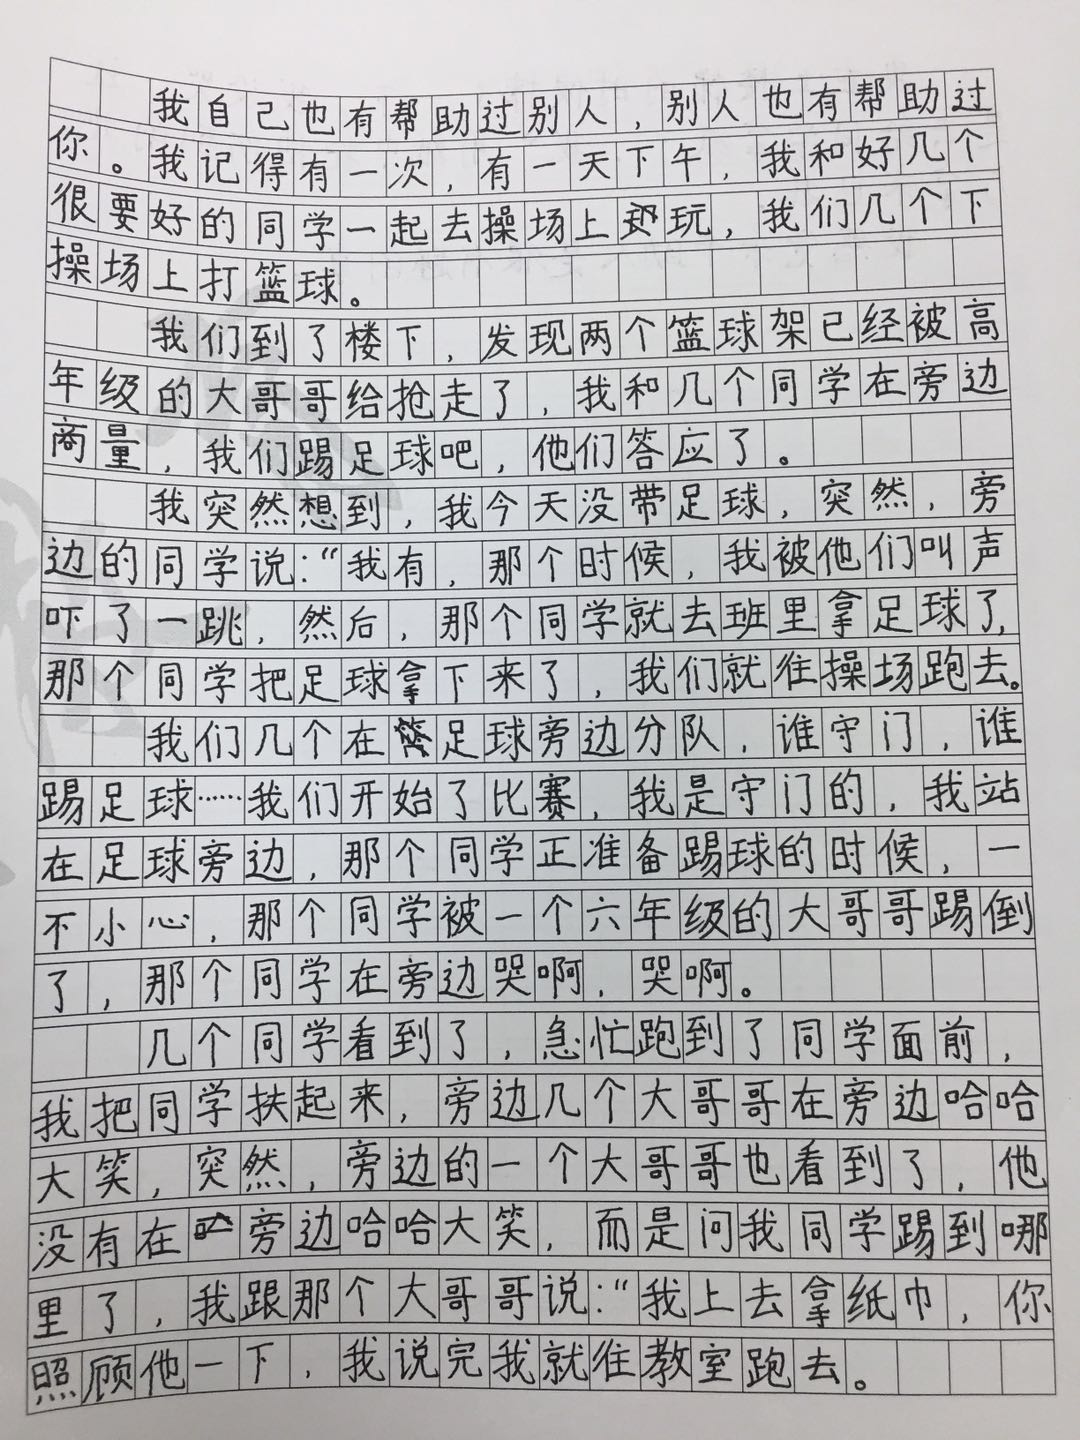 我自己也有帮助过别人，别人也有帮助过
你。我记得有一次，有一天下午，我和好几个
很要好的同学一起去操场上玩，我们几个下
操场上打篮球。
我们到了楼下，发现两个篮球架已经被高
年级的大哥哥给抢走了，我和几个同学在旁边
商量，我们踢足球吧，他们答应了。
我突然想到，我今天没带足球，突然，旁
边的同学说：“我有，那个时候，我被他们叫声
吓了一跳，然后，那个同学就去班里拿足球了，
那个同学把足球拿下来了，我们就往操场跑去。
我们几个在足球旁边分队，谁守门，谁
踢足球……我们开始了比赛，我是守门的，我站
在足球旁边，那个同学正准备踢球的时候，一
不小心，那个同学被一个六年级的大哥哥踢倒
了，那个同学在旁边哭啊，哭啊。
几个同学看到了，急忙跑到了同学面前，
我把同学扶起来，旁边几个大哥哥在旁边哈哈
大笑，突然，旁边的一个大哥哥也看到了，他
没有在旁边哈哈大笑，而是问我同学踢到哪
里了，我跟那个大哥哥说：“我上去拿纸巾，你
照顾他一下，我说完我就往教室跑去。